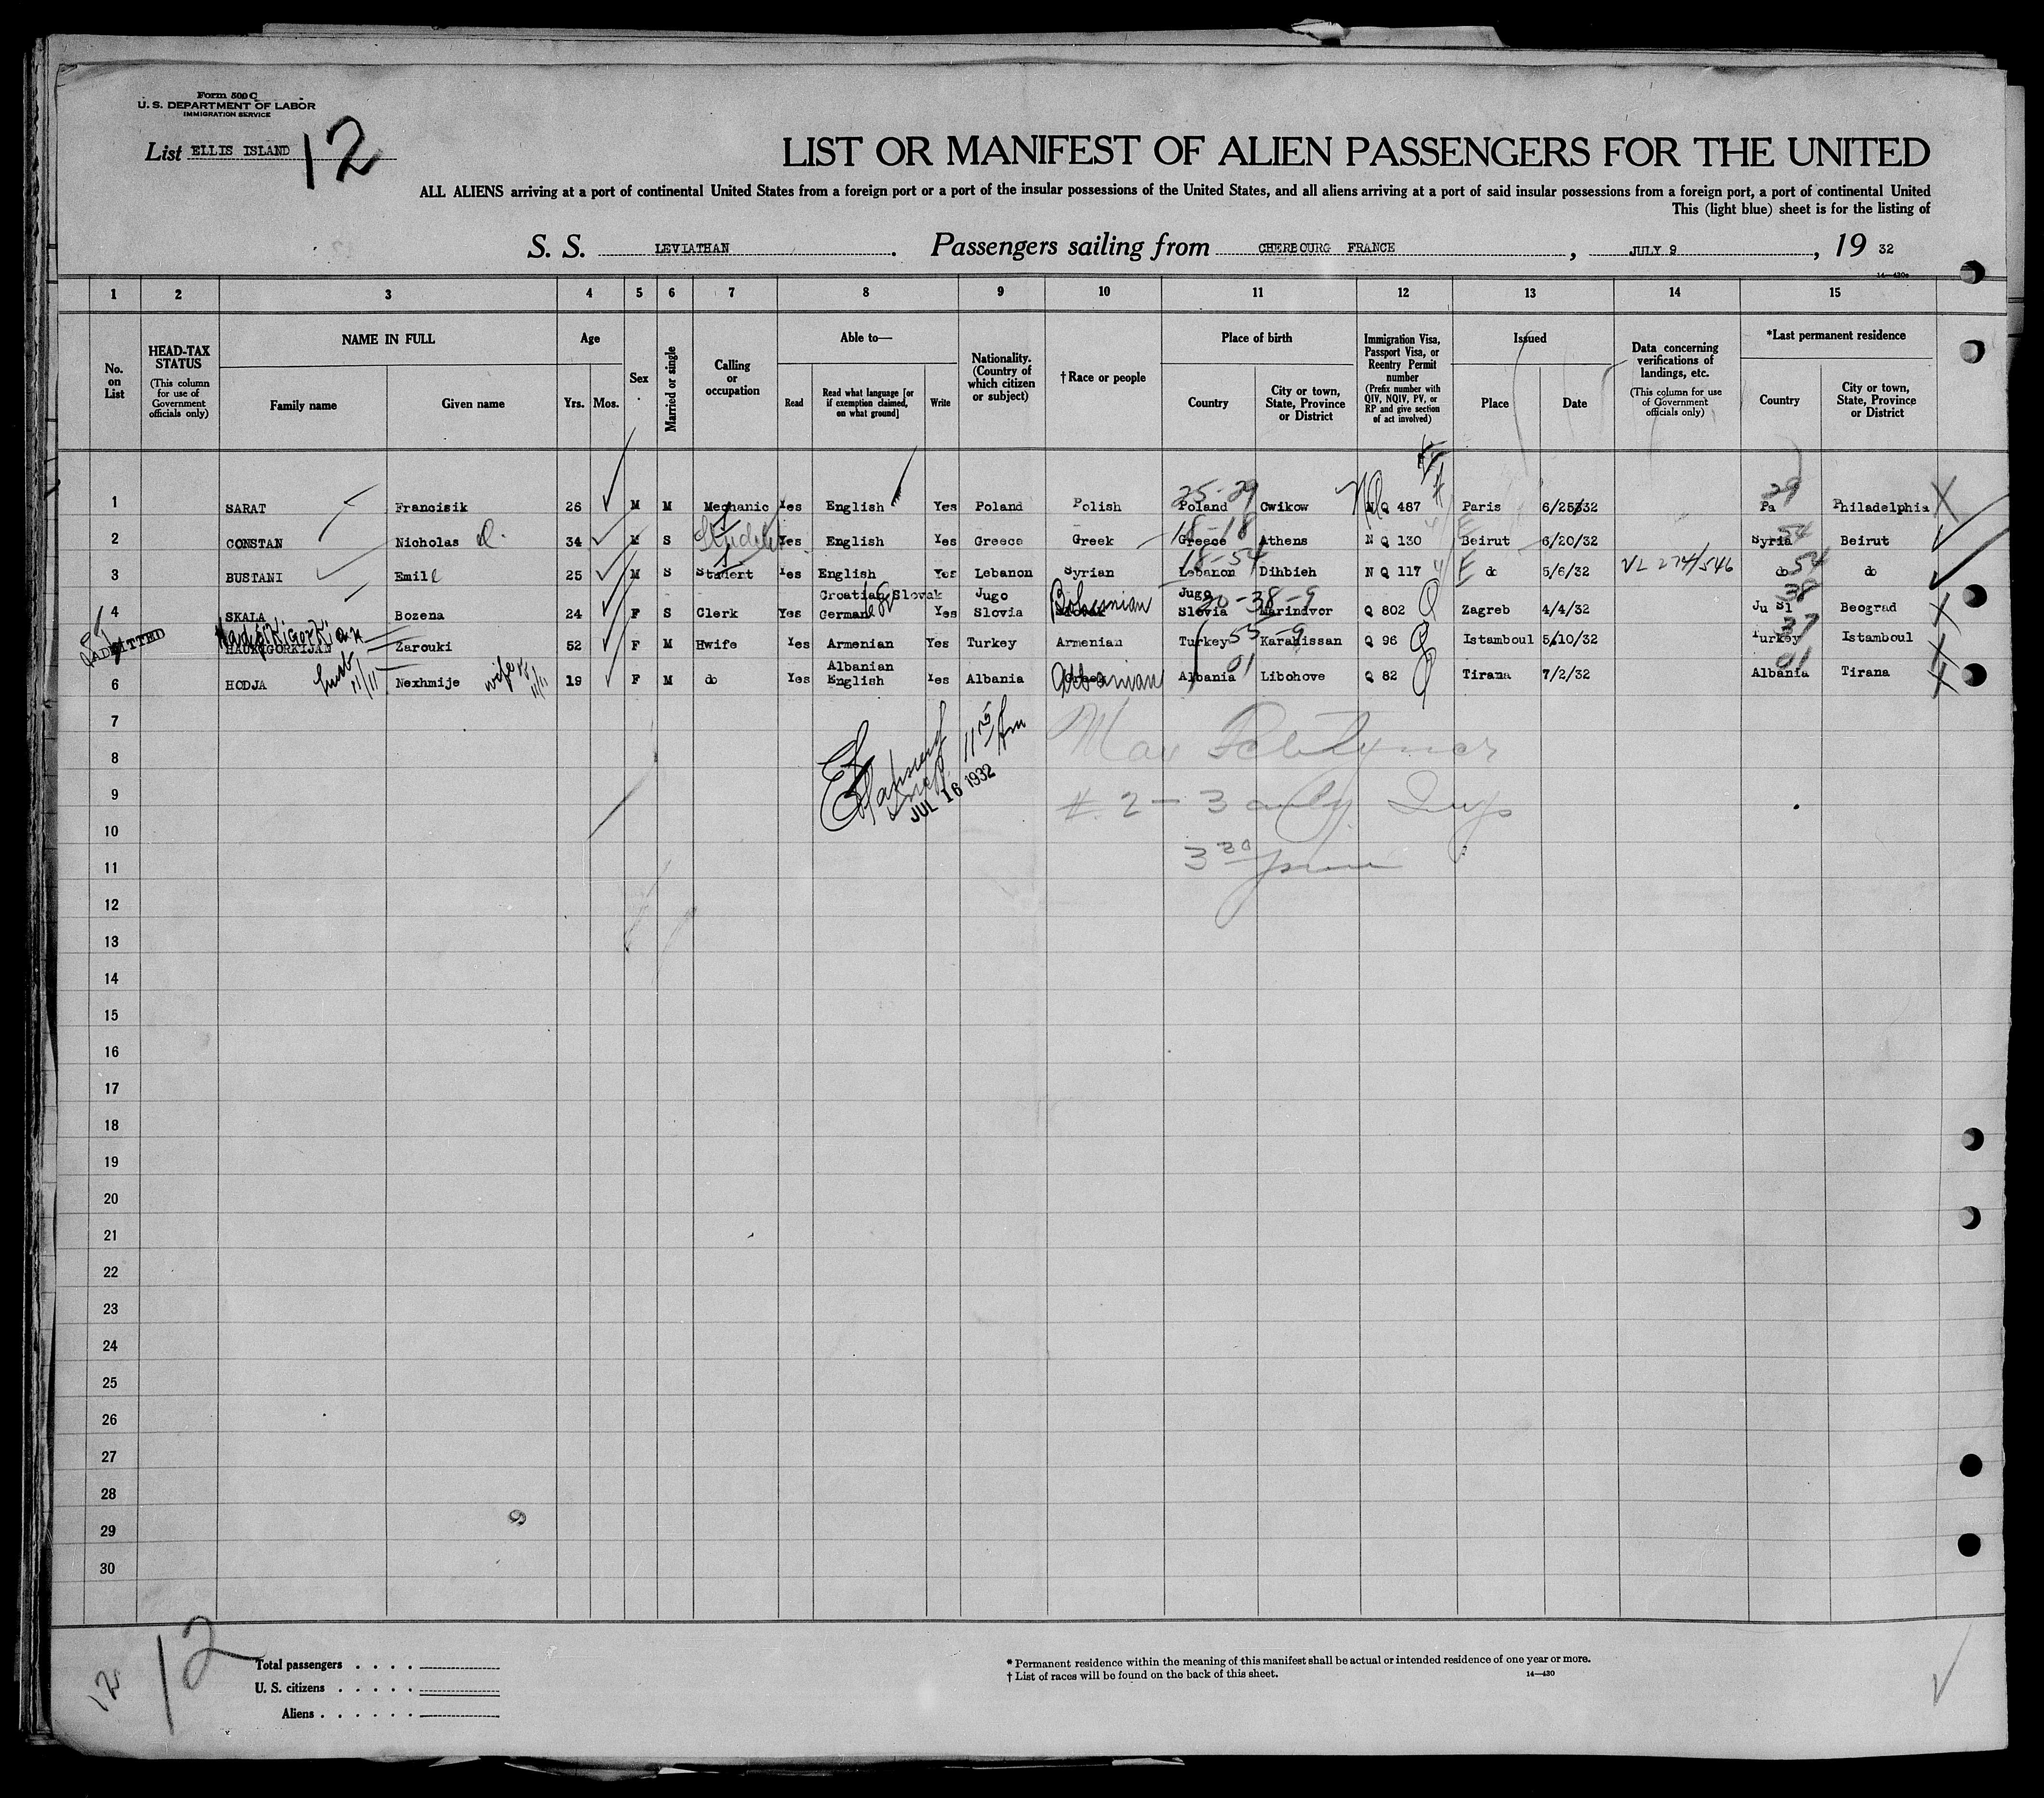 Form 500 C
U. S. DEPARTMENT OF LABOR
IMMIGRATION SERVICE
List ELLIS ISLAND 12
LIST OR MANIFEST OF ALIEN PASSENGERS FOR THE UNITED
ALL ALIENS arriving at a port of continental United States from a foreign port or a port of the insular possessions of the United States, and all aliens arriving at a port of said insular possessions from a foreign port, a port of continental United
This (light blue) sheet is for the listing of
S. S. LEVIATHAN. Passengers sailing from CHERBOURG FRANCE, JULY 9, 19 32
14—430a
1 2 3 4 5 6 7 8 9 10 11 12 13 14 15
No. on List
HEAD-TAX STATUS (This column for use of Government officials only)
NAME IN FULL
Family name Given name
Age
Yrs. Mos.
Sex
Married or single
Calling or occupation
Able to—
Read
Read what language [or if exemption claimed, on what ground]
Write
Nationality. (Country of which citizen or subject)
† Race or people
Place of birth
Country
City or town, State, Province or District
Immigration Visa, Passport Visa, or Reentry Permit number (Prefix number with QIV, NQIV, PV, or RP and give section of act involved)
Issued
Place Date
Data concerning verifications of landings, etc. (This column for use of Government officials only)
*Last permanent residence
Country
City or town, State, Province or District
25-29 29
1 SARAT Francisik 26 M M Mechanic Yes English Yes Poland Polish Poland Cwikow NQ 487 Paris 6/25/32 Pa Philadelphia X
18-18 54
2 CONSTAN Nicholas D. 34 M S Student Yes English Yes Greece Greek Greece Athens NQ 130 Beirut 6/20/32 Syria Beirut
18-54 54
3 BUSTANI Emil 25 M S Student Yes English Yes Lebanon Syrian Lebanon Dihbieh NQ 117 do 5/6/32 VL 274/546 do do
Croatian Slovak Jugo Jugo 20-38-9 38
4 SKALA Bozena 24 F S Clerk Yes German Yes Slovia Bohemian Slovia Marindvor Q 802 Zagreb 4/4/32 Ju Sl Beograd X
ADMITTED Hadjikigorkian 55-9 37
5 HADKIGORKIJAN Zarouki 52 F M Hwife Yes Armenian Yes Turkey Armenian Turkey Karahissan Q 96 Istamboul 5/10/32 Turkey Istamboul X
Albanian 01 01
6 HODJA husb 11/11 Nexhmije wife 11/11 19 F M do Yes English Yes Albania Albanian Albania Libohove Q 82 Tirana 7/2/32 Albania Tirana X
7
8
JUL 16 1932
9
# 2 - 3 only
10
3 30 pm
11
12
13
14
15
16
17
18
19
20
21
22
23
24
25
26
27
28
29
30
12 12
Total passengers . . . .
U. S. citizens . . . . .
Aliens . . . . . .
* Permanent residence within the meaning of this manifest shall be actual or intended residence of one year or more.
† List of races will be found on the back of this sheet. 14—430